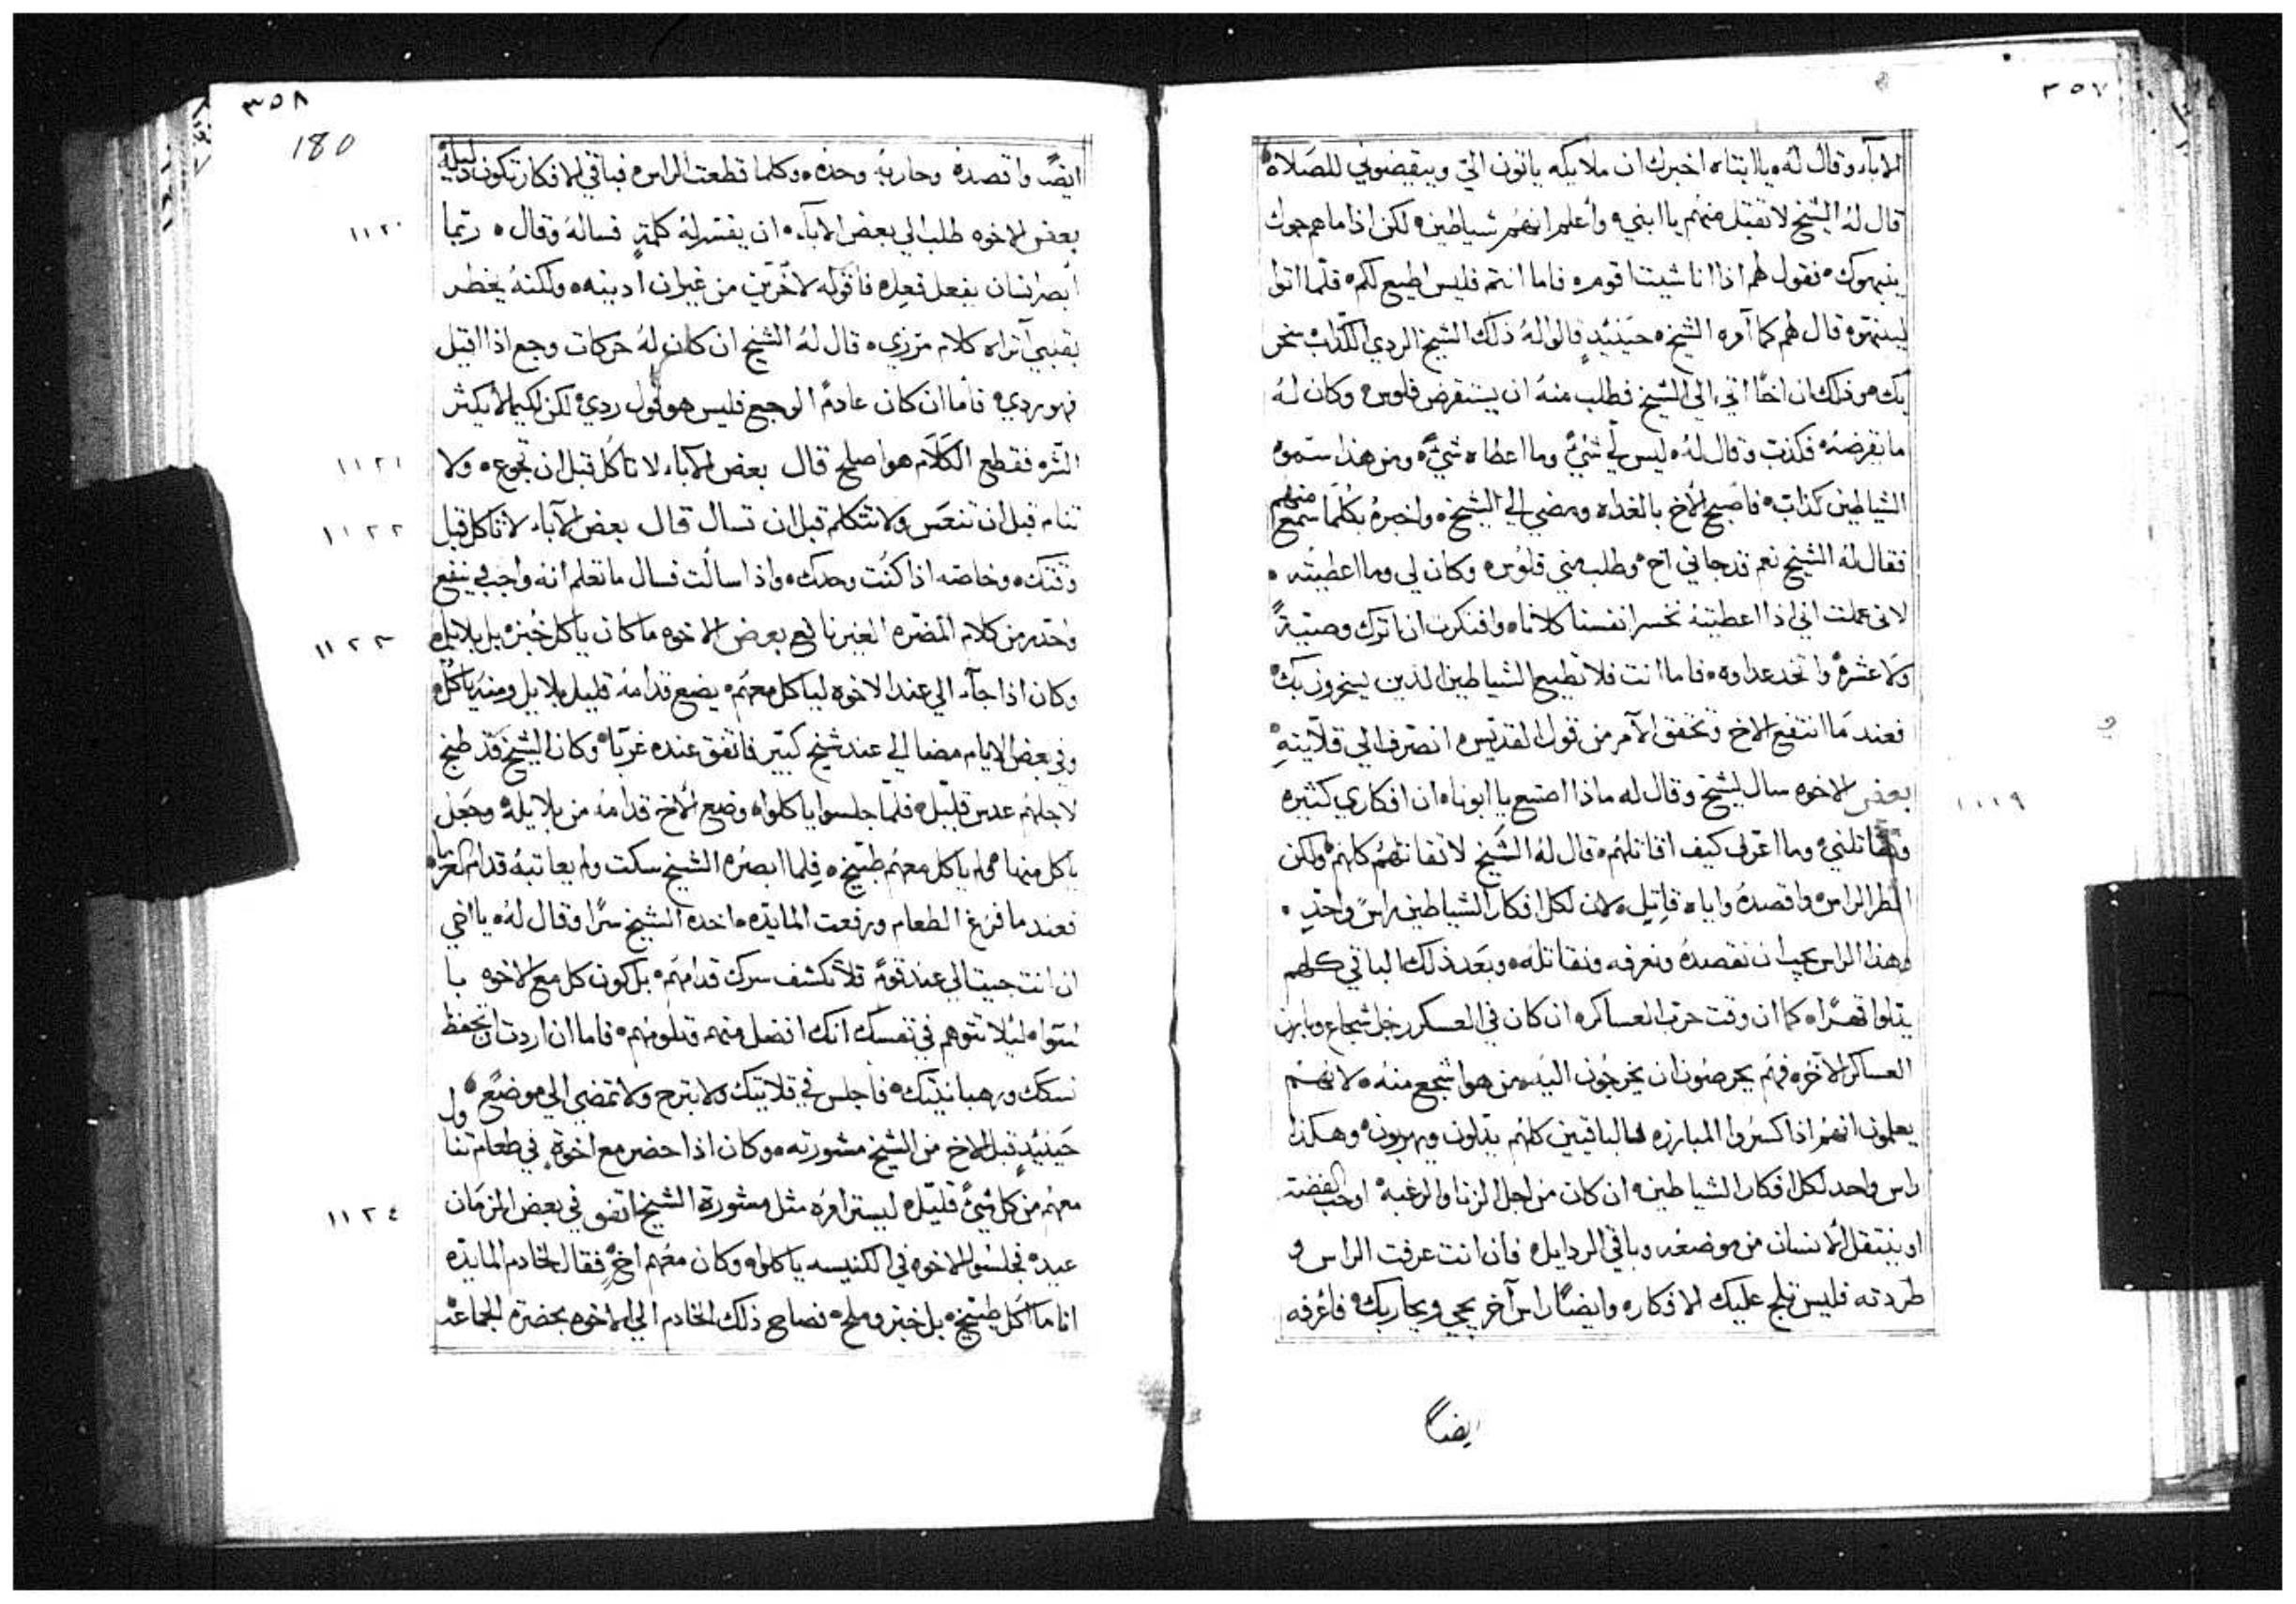 ٣٥٧
الاباء وقال له يا ابتاه اخبرك ان ملايكه ياتون الي ويبقضوني للصلاة
قال له الشيخ لا تقبل منهم يا ابني وأعلم انهم شياطين لكن اذا ما هم جوك
ينبهوك فقول لهم اذا انا شيت انا قوم فاما انتم فليس اطيع لكم فلما اتوا
لينبهوه قال لهم كما آمره الشيخ حينيدٍ قالوا له ذلك الشيخ الردي الكداب سخر
بك وذلك ان اخًا اتى الي الشيخ فطلب منه ان يستقرض فلوس وكان له
ما يقرضه فكذب وقال له ليس لي شيً وما اعطاه شيً ومن هذا ستموه
الشياطين كذاب فاصبح الاخ بالغداه ومضي الي الشيخ واخبره بكلما سمع منهم
فقال له الشيخ نعم قد جاني اخ وطلب مني فلوس وكان لي وما اعطيته
لاني عملت اني اذا اعطيته نخسر انفسنا كلانا وافتكرت ان اترك وصيةً
ولا عشرهْ واتخد عداوه فاما انت فلا تطيع الشياطين الذين ليسخرون بك
فعند ما انتفع الاخ وتحقق الامر من قول القديس انصرف الي قلايته
١١١٩
بعض الاخوه سال لشيخ وقال له ماذا اصنع يا ابونا ان افكاري كثيره
وتقاتلني وما اعرف كيف اقاتلهم قال له الشيخ لا تقاتلهم كلهم ولكن
انظر الراس واقصده واياه قاتل لان لكل افكار الشياطين راسً واحدٍ
وهذا الراس يجب ان نقصده ونعرفه ونقاتله وبعد ذلك الباقي كلهم
يذلوا قهرًا كما ان وقت حرب العساكر ان كان في العسكر رجل شجاع وبارز
العساكر الآخره فهم يحرصون ان يخرجون اليه من هو اشجع منه لانهم
يعلمون انهم اذا كسروا المبارزه فالباقيين كلهم يذلون ويهربون وهكذا
راس واحد لكل افكار الشياطين ان كان من اجل الزنا والرغبه او حب الفضه
او ينتقل الانسان من موضعه وباقي الردايل فان انت عرفت الراس و
طردته فليس تلج عليك الافكار وايضًا راس آخر يجي ويحاربك فاعرفه
ايضًا
٣٥٨
180
ايضًا واقصده وحاربه وحده وكلما قطعت الراس فباقي الافكار تكون دليله
١١٢٠
بعض الاخوه طلب الي بعض الاباء ان يفسر له كلمةٍ فساله وقال ربما
ابصر انسان يفعل فعل فاقوله لاخرين من غير ان ادينه ولكنه يخطر
بقلبي اتراه كلام مزري قال له الشيخ ان كان له حركات وجع اذا اقيل
فهو ردي فاما ان كان عادمً الوجع فليس هو قول ردي لكن لكيما لا يكثر
١١٢١
الشره فقطع الكلام هو اصلح قال بعض الاباء لا تاكل قبل ان تجوع ولا
١١٢٢
تنام قبل ان تنعس ولا تتكلم قبل ان تسال قال بعض الاباء لا تاكل قبل
وقتك وخاصه اذا كنت وحدك واذا سالت فسال ما تعلم انه واجب في ينفع
١١٢٣
واحدر من كلام المضره الغير نافع بعض الاخوه ما كان ياكل خبز بل بلابل
وكان اذا جاء الي عند الاخوه لياكل معهم يضع قدامه قليل بلابل ومنه ياكل
وفي بعض الايام مضا الي عند شيخ كبير فاتفق عنده غربا وكان الشيخ قد طبخ
لاجلهم عدس قليل فلما جلسوا ياكلوا وضع الاخ قدامه من بلابله وجعل
ياكل منها ولم ياكل معهم طبيخ فلما ابصره الشيخ سكت ولم يعاتبه قدام الغربا
فعند ما فرغ الطعام ورفعت المايده اخده الشيخ سرًا وقال له يا اخي
ان انت جيت الي عند قومً فلا تكشف سرك قدامهم بل كون كل مع الاخوه با
لسوا ليلا تتوهم في نفسك انك افضل منهم وتلومهم فاما ان اردت ان تحفظ
نسكك ورهبانيتك فاجلس في قلايتك ولا تبرح ولا تمضي الي موضع
حينيدٍ قبل الاخ من الشيخ مشورته وكان اذا حضر مع اخوةٍ في طعام تناول
معهم من كل شيً قليل ليستر امره مثل مشورة الشيخ
١١٢٤
اتفق في بعض الزمان
عيده فجلسوا الاخوه في الكنيسه ياكلوا وكان معهم اخٍ فقال لخادم المايده
انا ما آكل طبيخ بل خبز وملح فصاح ذلك الخادم الي الاخوه بحضرة الجماعه